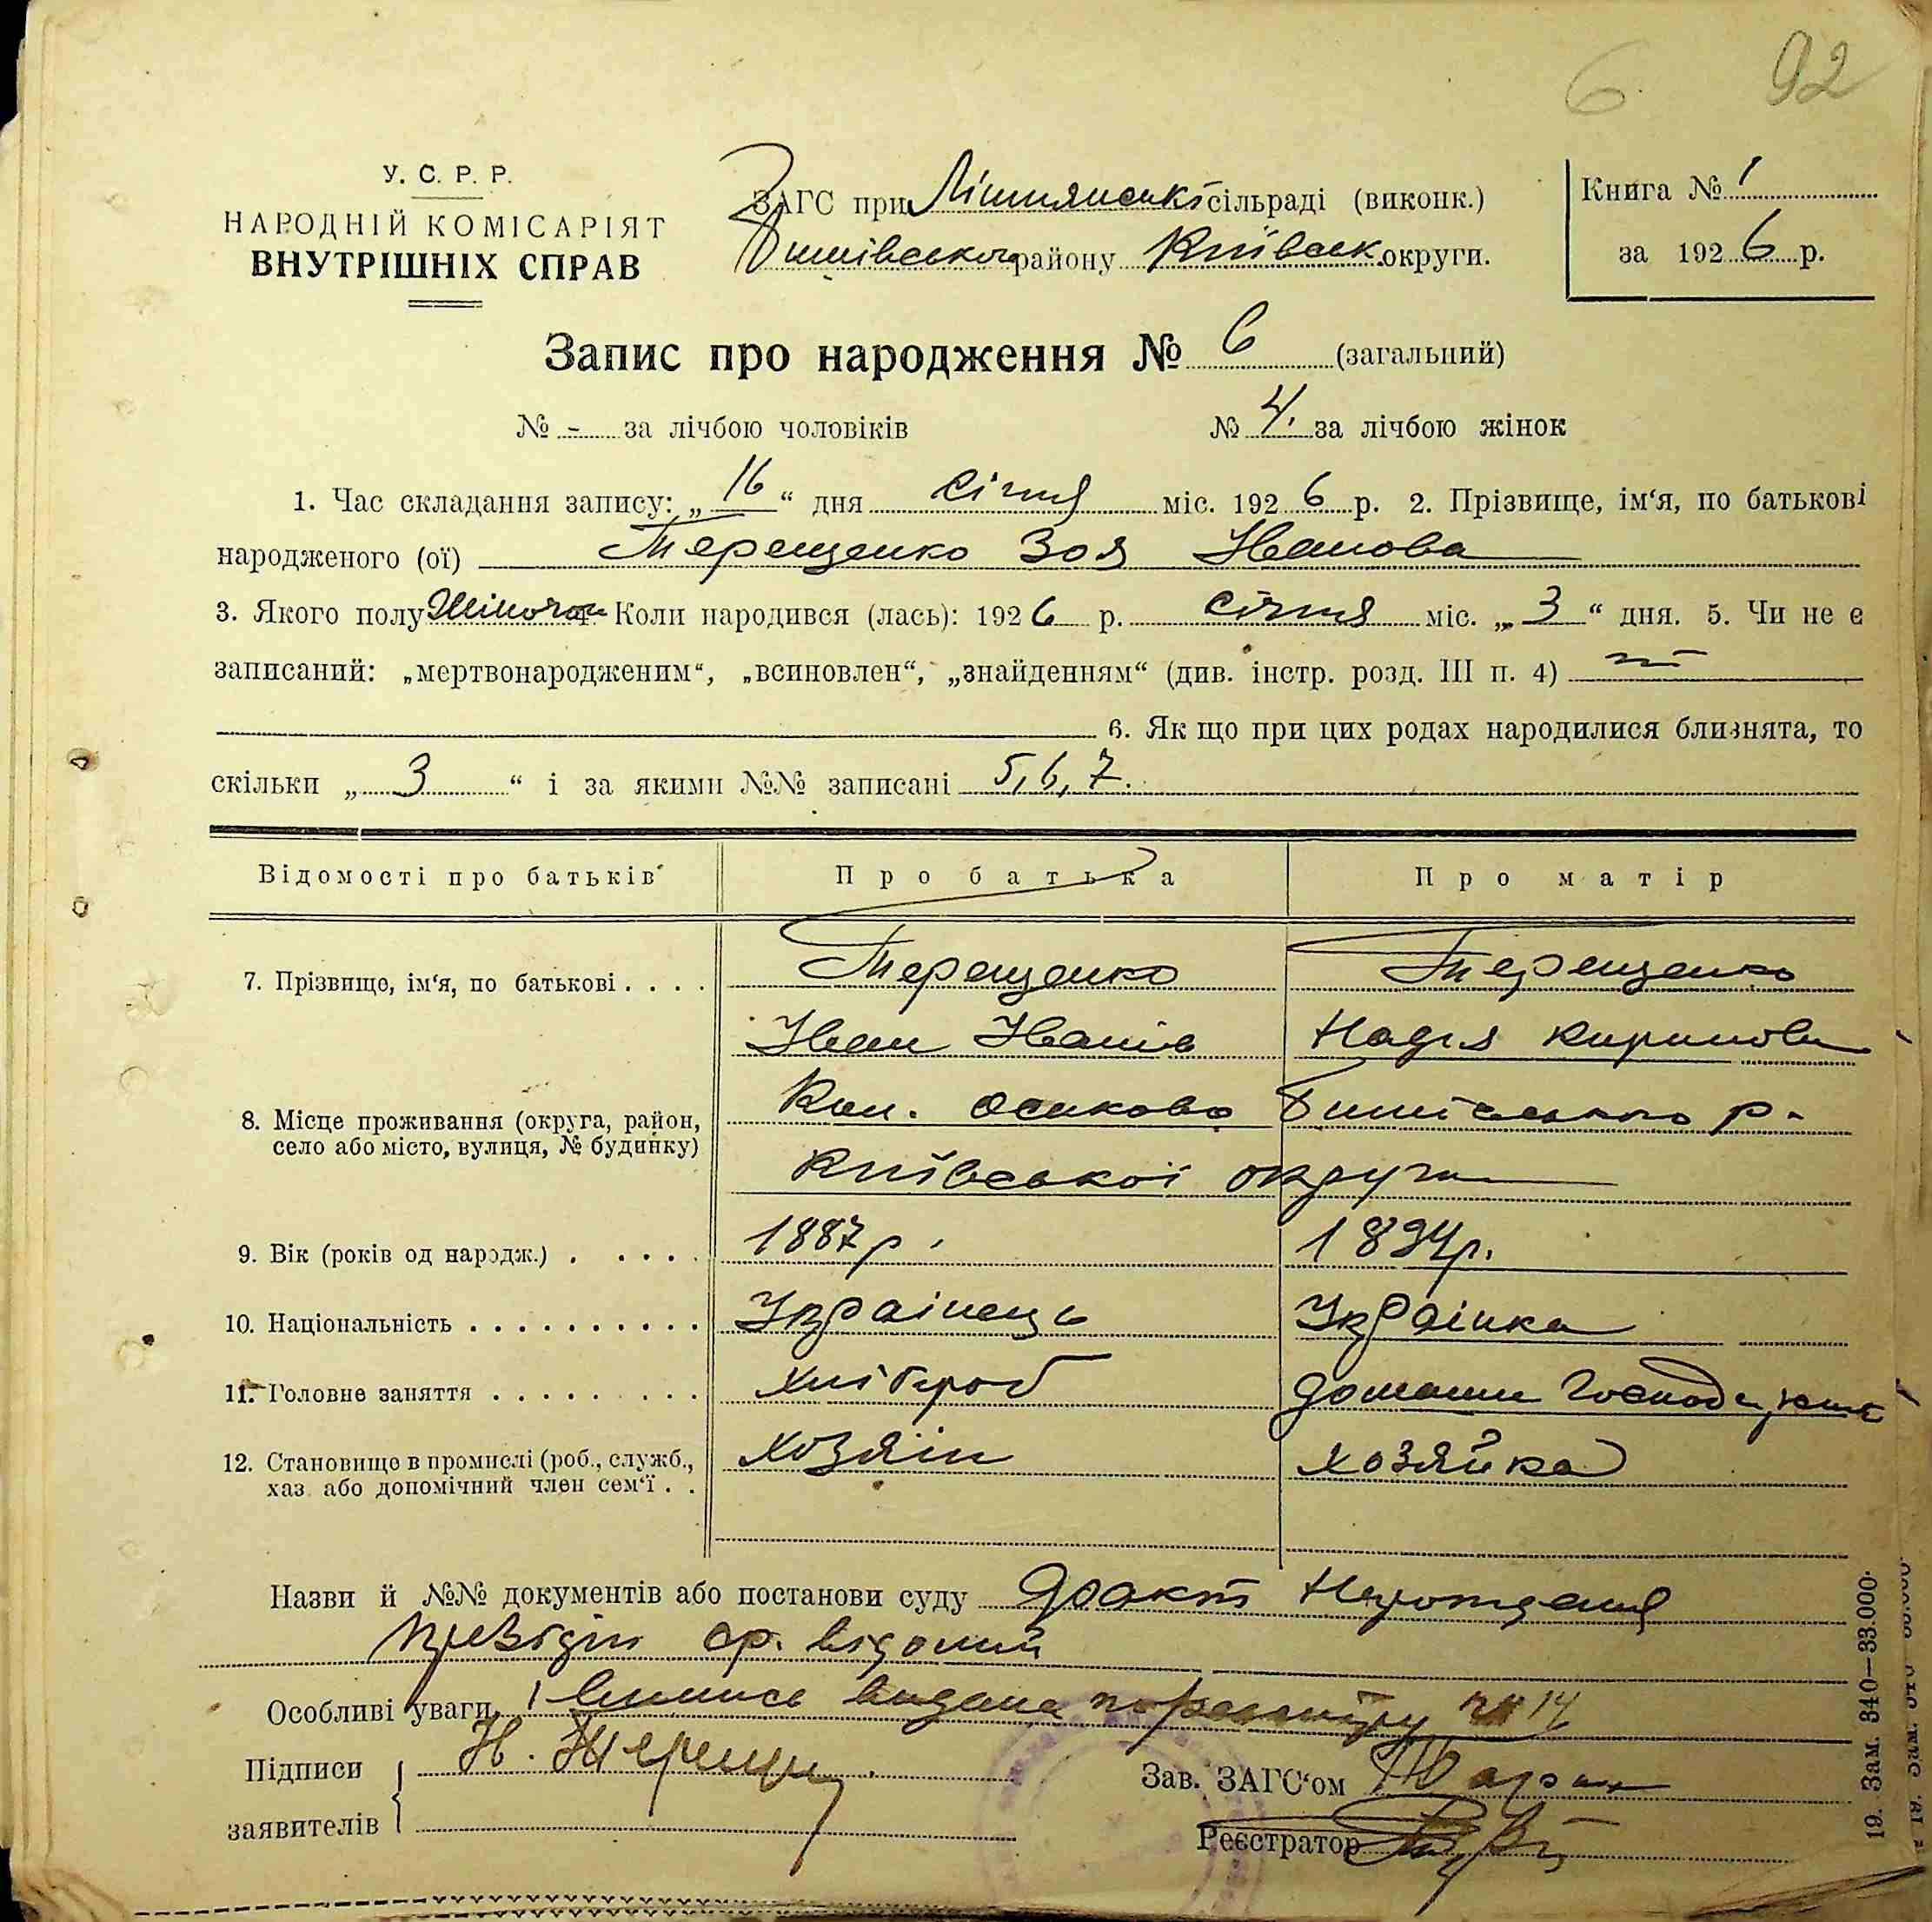 6 92
У. С. Р. Р.
НАРОДНІЙ КОМІСАРІЯТ
ВНУТРІШНІХ СПРАВ
ЗАГС при сільраді (виконк.)
району Київськ. округи.
Книга № 1
за 1926 р.
Запис про народження № 6 (загальний)
№ - за лічбою чоловіків № 4. за лічбою жінок
1. Час складання запису: „16“ дня січня міс. 1926 р. 2. Прізвище, ім‘я, по батькові
народженого (ої) Терещенко Зоя Іванова
3. Якого полу Жіночог 4. Коли народився (лась): 1926 р. січня міс. „3“ дня. 5. Чи не є
записаний: „мертвонародженим“, „всиновлен“, „знайденням“ (див. інстр. розд. III п. 4) ні
6. Як що при цих родах народилися близнята, то
скільки „3“ і за якими №№ записані 5, 6, 7.
Відомості про батьків Про батька Про матір
7. Прізвище, ім‘я, по батькові . . . . Терещенко Терещенко
Іван Іванів Надія Кирилова
8. Місце проживання (округа, район, Кол. Осикова Бишівського р-
село або місто, вулиця, № будинку) Київської округи
9. Вік (років од народж.) . . . . . 1887 р. 1894 р.
10. Національність . . . . . . . . . . Українець Українка
11. Головне заняття . . . . . . . . . Хлібороб домашнє господарство
12. Становище в промислі (роб., служб., хозяїн хозяйка
хаз. або допомічний член сем‘ї . .
Назви й №№ документів або постанови суду факт народження
президії с/р. відомий
Особливі уваги 1 виписа видана по реєстру № 14
Підписи Н. Терещ
заявителів
Зав. ЗАГС‘ом
Реєстратор
19. Зам. 340—33.000.